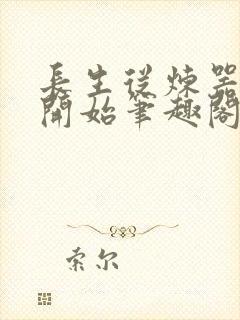 長生從煉器
開始筆趣閣
索尔